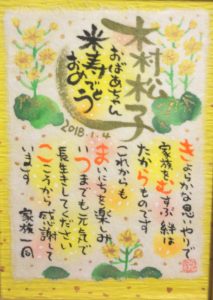 木村松子
おばあちゃん
米寿でとう
おめ
2018.1.4
きよらかな思いやりで
家族をむすぶ絆は
たからものです
これからも
まいにちを楽しみ
いつまでも元気で
長生きしてください
こころから感謝して
います
家族一同